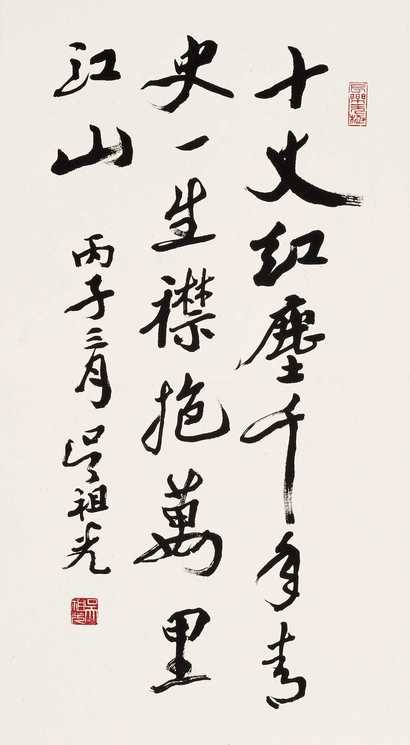 十丈红塵千年青
史一生襟抱萬里
江山
丙子三月 吴祖光